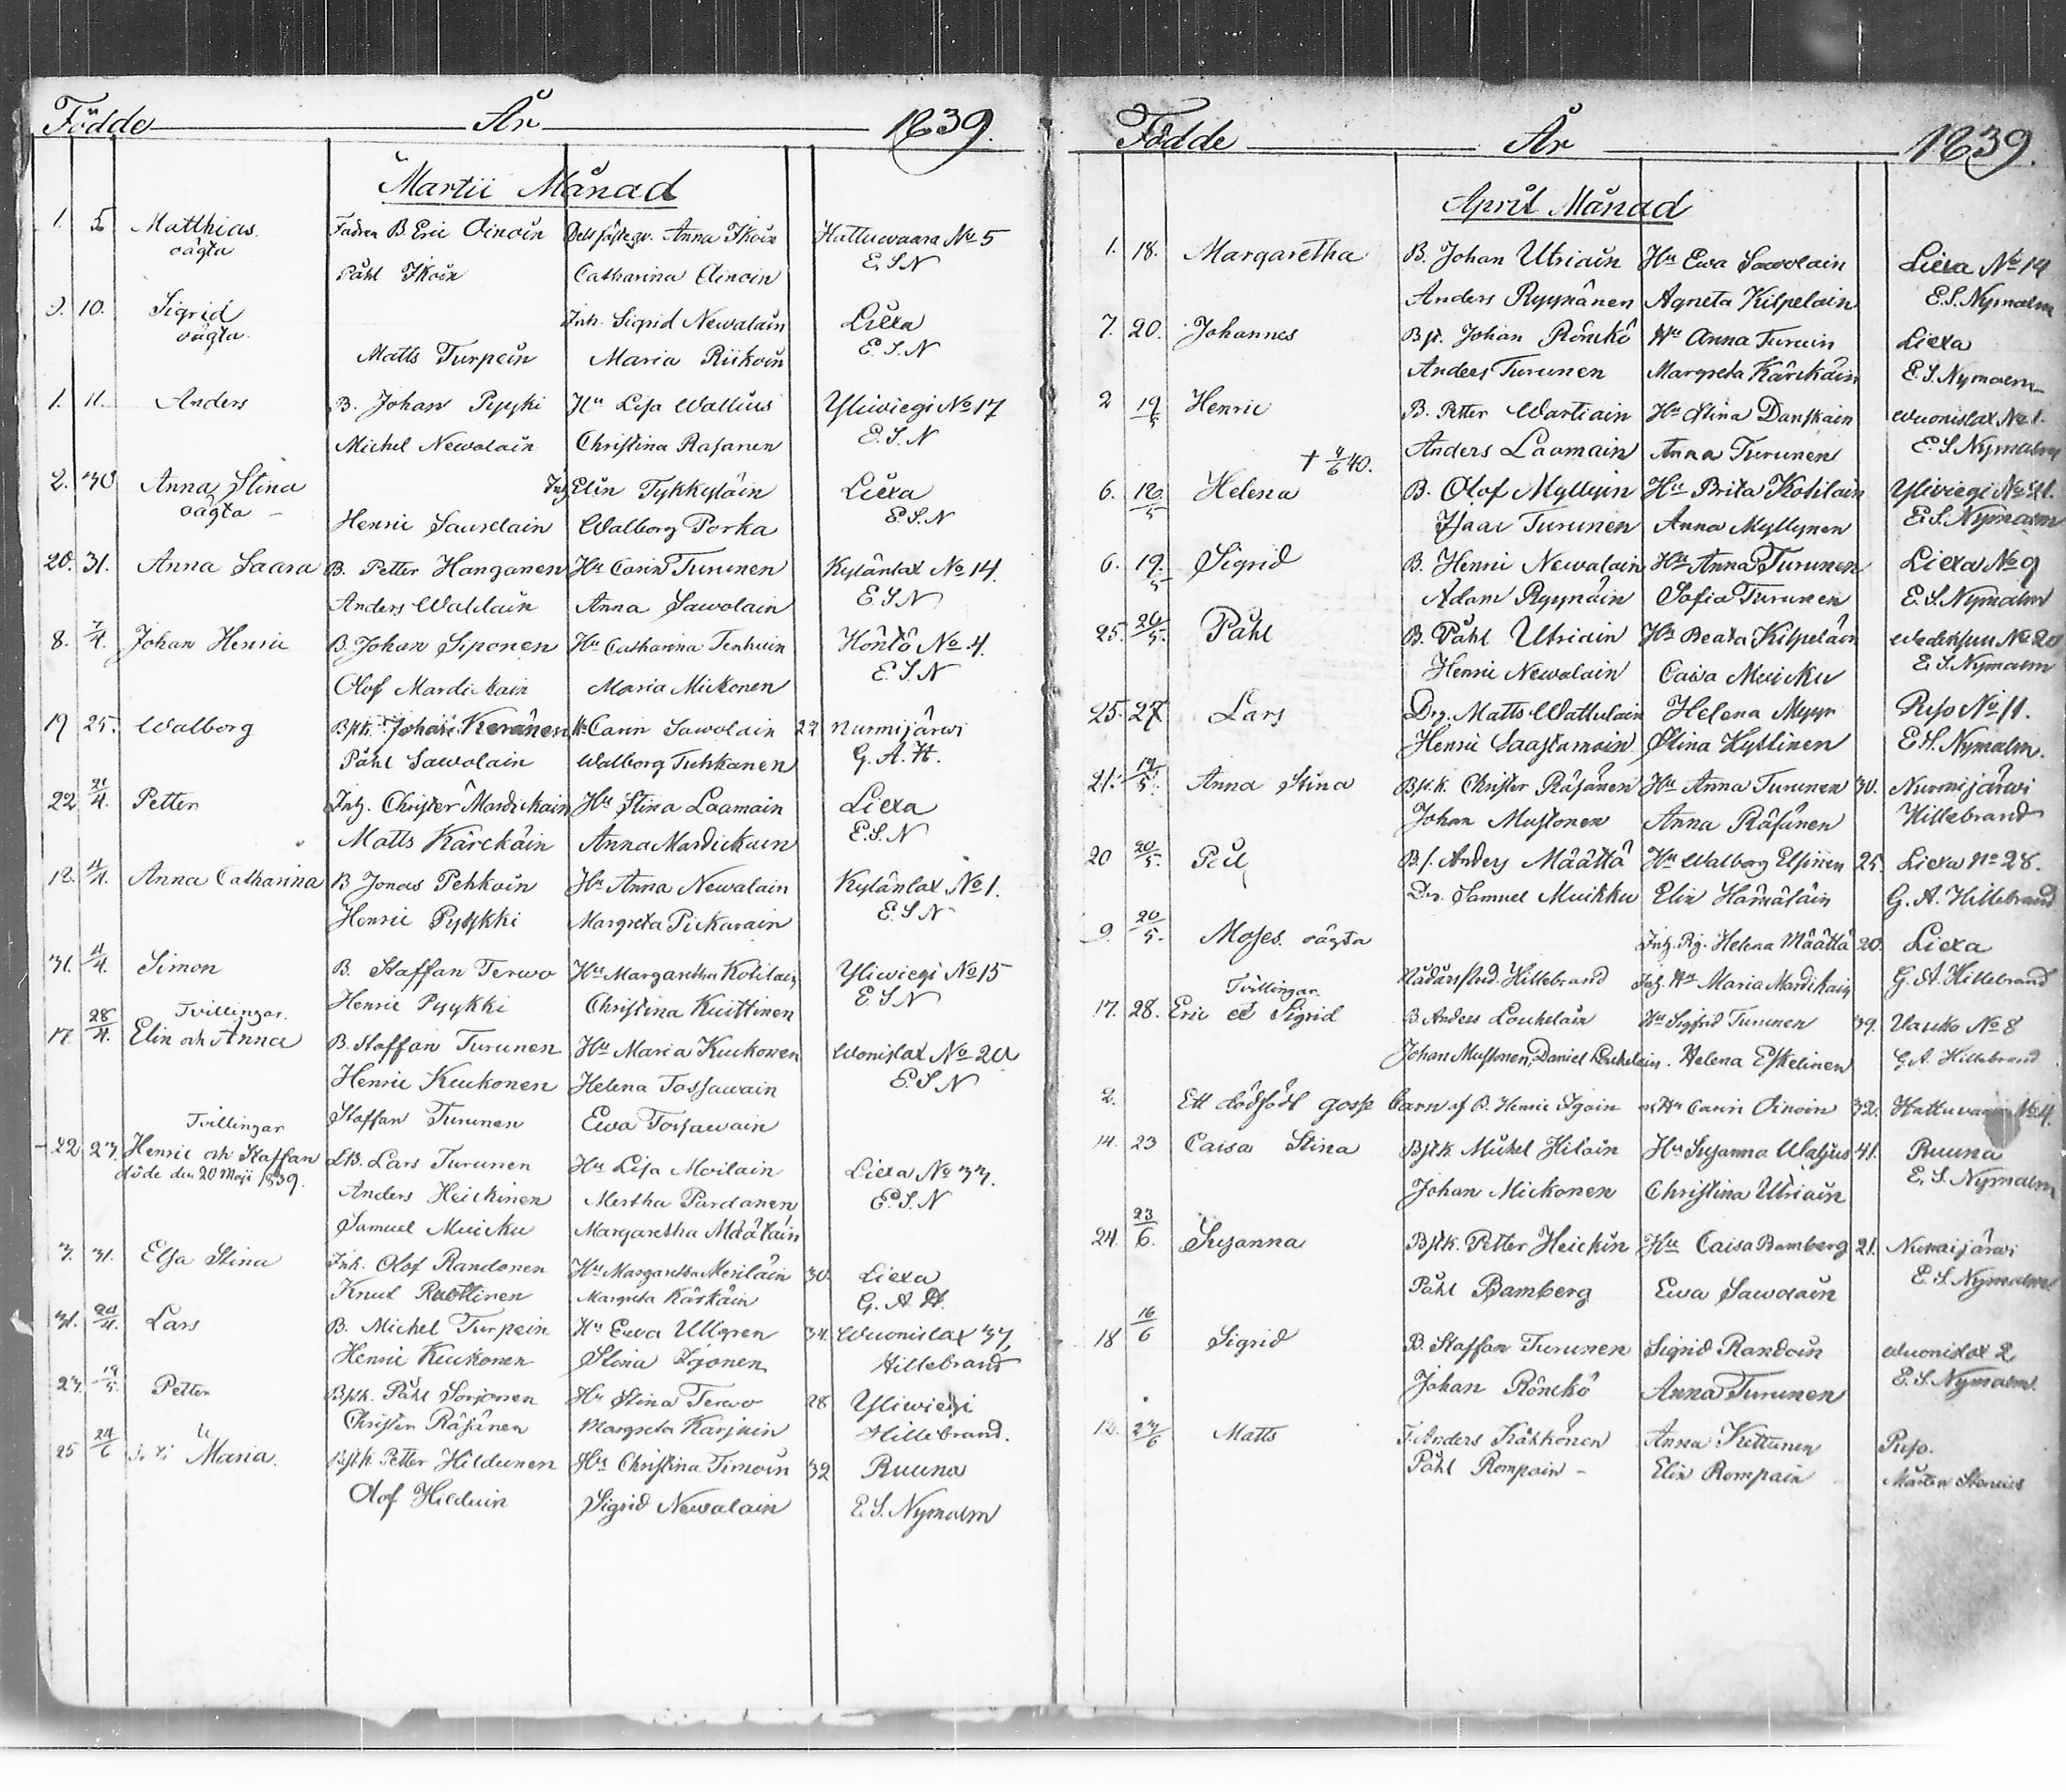 Födde År 1839.
Martii Månad
1. 5 Matthias Fadren B. Eric Ainoin Anna Ikoin Hattuwaara No 5
oägta Påhl Ikoin Catharina Ainoin E. S. N
10. Sigrid Inh. Sigrid Newalain Liexa
oägta Matts Turpein Maria Riikoin E. S. N
1. 11. Anders B. Johan Pyyki Hu Lisa Wallius Yliwiegi No 17
Michel Newalain Christina Rasanen E. S. N
2. 30 Anna Stina Inh Elin Tykkyläin Liexa
oägta Henric Walborg Porka E. S. N
20. 31. Anna Saara B. Petter Hanganen Hu Carin Turunen Kylänlax No 14.
Anders Anna Sawolain E. S N
8. 7/4. Johan Henric B. Johan Siponen Hu Catharina Tenhuin Höntö No 4.
Olof Mardickain Maria Mickonen E. S. N
19 25. Walborg Bstk. Johan Keränen Hu Carin Sawolain 22 Nurmijärwi
Påhl Sawolain Walborg Tuhkanen G. A. H.
22 21/4. Petter Inh. Christer Mardickain Hu Stina Laamain Liexa
Matts Kärckäin Anna Mardickain E. S. N
12. 4/4. Anna Catharina B Jonas Pehkoin Hu Anna Newalain Kylänlax No 1.
Henric Pyykki Margreta Pickarain E. S N
31. 4/4. Simon B. Staffan Terwo Hu Margaretha Kotilain Yliwiegi No 15
Henric Pyykki Christina Kuittinen E. S N
Tvillingar.
17. 28/4. Elin och Anna B. Staffan Turunen Hu Maria Kuckonen Wonislax No 20
Henric Kuckonen Helena Tossawain E. S N
Staffan Turunen Ewa Tossawain
Tvillingar
22 23. Henric och Staffan Lars Turunen Hu Lisa Moilain Liexa No 33.
döde den 20 Maji 1839. Anders Heickinen Mertha Pardanen E. S. N
Samuel Muicku Margaretha Määtäin
3. 31. Elsa Stina Inh. Olof Randonen Hu Margaretha Meriläin 30. Liexa
Knut Ruottinen Margreta Käckäin G. A. H.
31. Lars B. Michel Turpein Hu Ewa Ullgren 34. Wuonislax 37,
Henric Kuckonen Stina Hillebrand
23. 19/5. Petter Bstk. Påhl Sorjonen Hu Stina Terwo 28 Yliwiegi
Christer Räsänen Margreta Karjain Hillebrand.
25 24/6 Maria. Bstk. Petter Hildunen Hu Christina Timoin 32 Ruuna
Olof Hilduin Sigrid Newalain E. S. Nymalm
Födde År 1839.
April Månad
1. 18. Margaretha B. Johan Utriain Hu Ewa Sawolain Liexa No 14
Anders Ryynänen Agneta Kilpelain E. S. Nymalm
7. 20. Johannes Bst. Johan Rönckö Hu Anna Turuin Liexa
Anders Turunen Margreta Kärckäin E. S. Nymalm
2 19/5 Henric B. Petter Wartiain Hu Stina Danskain Wuonislax No 1.
Anders Laamain Anna Turunen E. S. Nymalm
† 4/6 40.
6. 12/5 Helena B. Olof Myllyin Hu Brita Kotilain Yliviegi No 21.
Isaac Turunen Anna Myllynen E. S. Nymalm
6. 19/5 Sigrid B. Henric Newalain Hu Anna Turunen Liexa No 9
Adam Ryynäin Sofia Turunen E. S. Nymalm
25. 26/5. Påhl B. Påhl Utriain Hu Beata Kilpeläin No 20
Henric Newalain Caisa Muicku E. S. Nymalm
25. 27. Lars Drg. Matts Wattulain Helena Myyr Reso No 11.
Henric Saastamoin Stina Kyllinen E. S. Nymalm.
21. 12/5. Anna Stina Bstk. Christer Räsänen Hu Anna Turunen 30. Nurmijärwi
Johan Mustonen Anna Räsänen Hillebrand
20 20/5. Bs. Anders Määttä Hu Walborg 25. Liexa No 28.
Dr. Samuel Muikku Elin Hämäläin G. A. Hillebrand
9. 20/5. Moses oägta Inh. Pig. Helena Määttä 20. Liexa
Hillebrand Inh. Hu Maria Mardikain G. A. Hillebrand
Tvillingar.
17. 28. Eric et Sigrid B Anders Louhelain Hu Sigfrid Turunen 39. No 8
Johan Mustonen, Daniel Louhelain. Helena Eskelinen G. A. Hillebrand
2. Ett dödfödt gosse barn af B. Henric Igoin o. Hu Carin Ainoin 32. Hattuvaara No 4.
14. 23 Caisa Stina Bstk Michel Hiloin Hu Susanna Waljus 41. Ruuna
Johan Mickonen Christina Utriain E. S. Nymalm
24. 23/6. Susanna Bstk. Petter Heickin Hu Caisa Bamberg 21. Nurmijärwi
Påhl Bamberg Ewa Sawolain E. S. Nymalm
18 16/6 Sigrid B. Staffan Turunen Sigrid Randoin Wuonislax 2
Johan Rönckö Anna Turunen E. S. Nymalm.
12. 23/6 Matts Anders Kähkönen Anna Kettunen Reso.
Påhl Rompain Elin Rompain Mårten Stenius